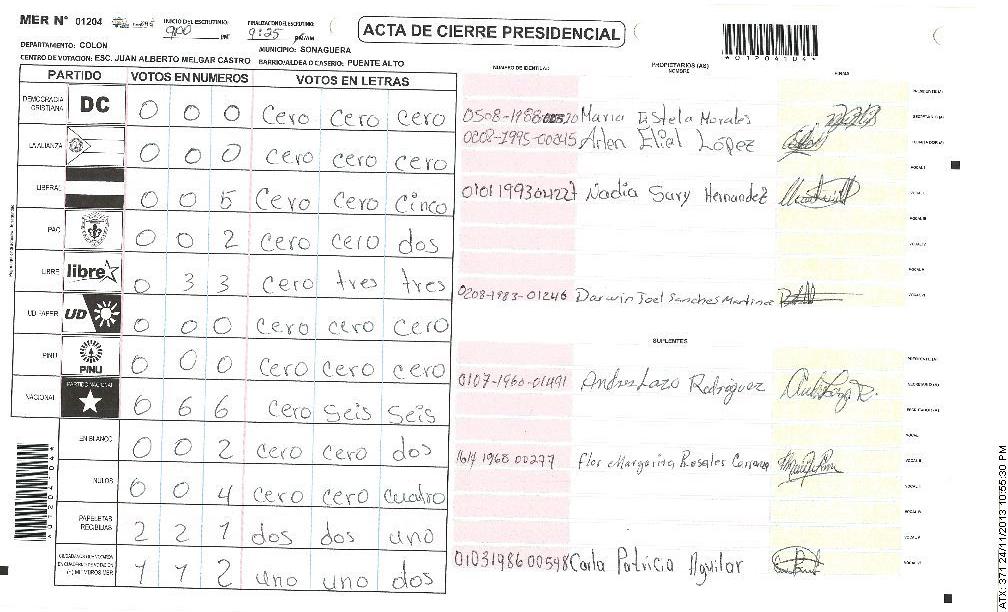 MER N° 01204 INICIO DEL ESCRUTINIO: 9:00 PM FINALIZACION DEL ESCRUTINIO: 9:25 PM
ACTA DE CIERRE PRESIDENCIAL
*01204104*
DEPARTAMENTO: COLON MUNICIPIO: SONAGUERA
CENTRO DE VOTACION: ESC. JUAN ALBERTO MELGAR CASTRO BARRIO/ALDEA O CASERIO: PUENTE ALTO
PARTIDO VOTOS EN NUMEROS VOTOS EN LETRAS
DEMOCRACIA CRISTIANA DC 0 0 0 Cero Cero Cero
LA ALIANZA 0 0 0 cero cero cero
LIBERAL 0 0 5 Cero Cero Cinco
PAC 0 0 2 Cero cero dos
LIBRE libre 0 3 3 Cero tres tres
UD FAPER UD 0 0 0 Cero cero cero
PINU PINU 0 0 0 Cero cero cero
NACIONAL PARTIDO NACIONAL 0 6 6 Cero Seis Seis
EN BLANCO 0 0 2 cero cero dos
NULOS 0 0 4 cero cero cuatro
PAPELETAS RECIBIDAS 2 2 1 dos dos uno
1 1 2 uno uno dos
NUMERO DE IDENTIDAD PROPIETARIOS (AS) NOMBRE FIRMA
Maria Estela Morales
0202-1995-00045 Arlen Eliel López
0101199304227 Nadia Sary Hernandez
0208-1983-01246 Darwin Joel Sanches Martinez
SUPLENTES
0107-1960-01491 Andres Lazo Rodriguez
1614 1968 00277 Flor Margarina Rosales
0103198600598 Carla Patricia Aguilar
ATX: 371 24/11/2013 10:55:30 PM